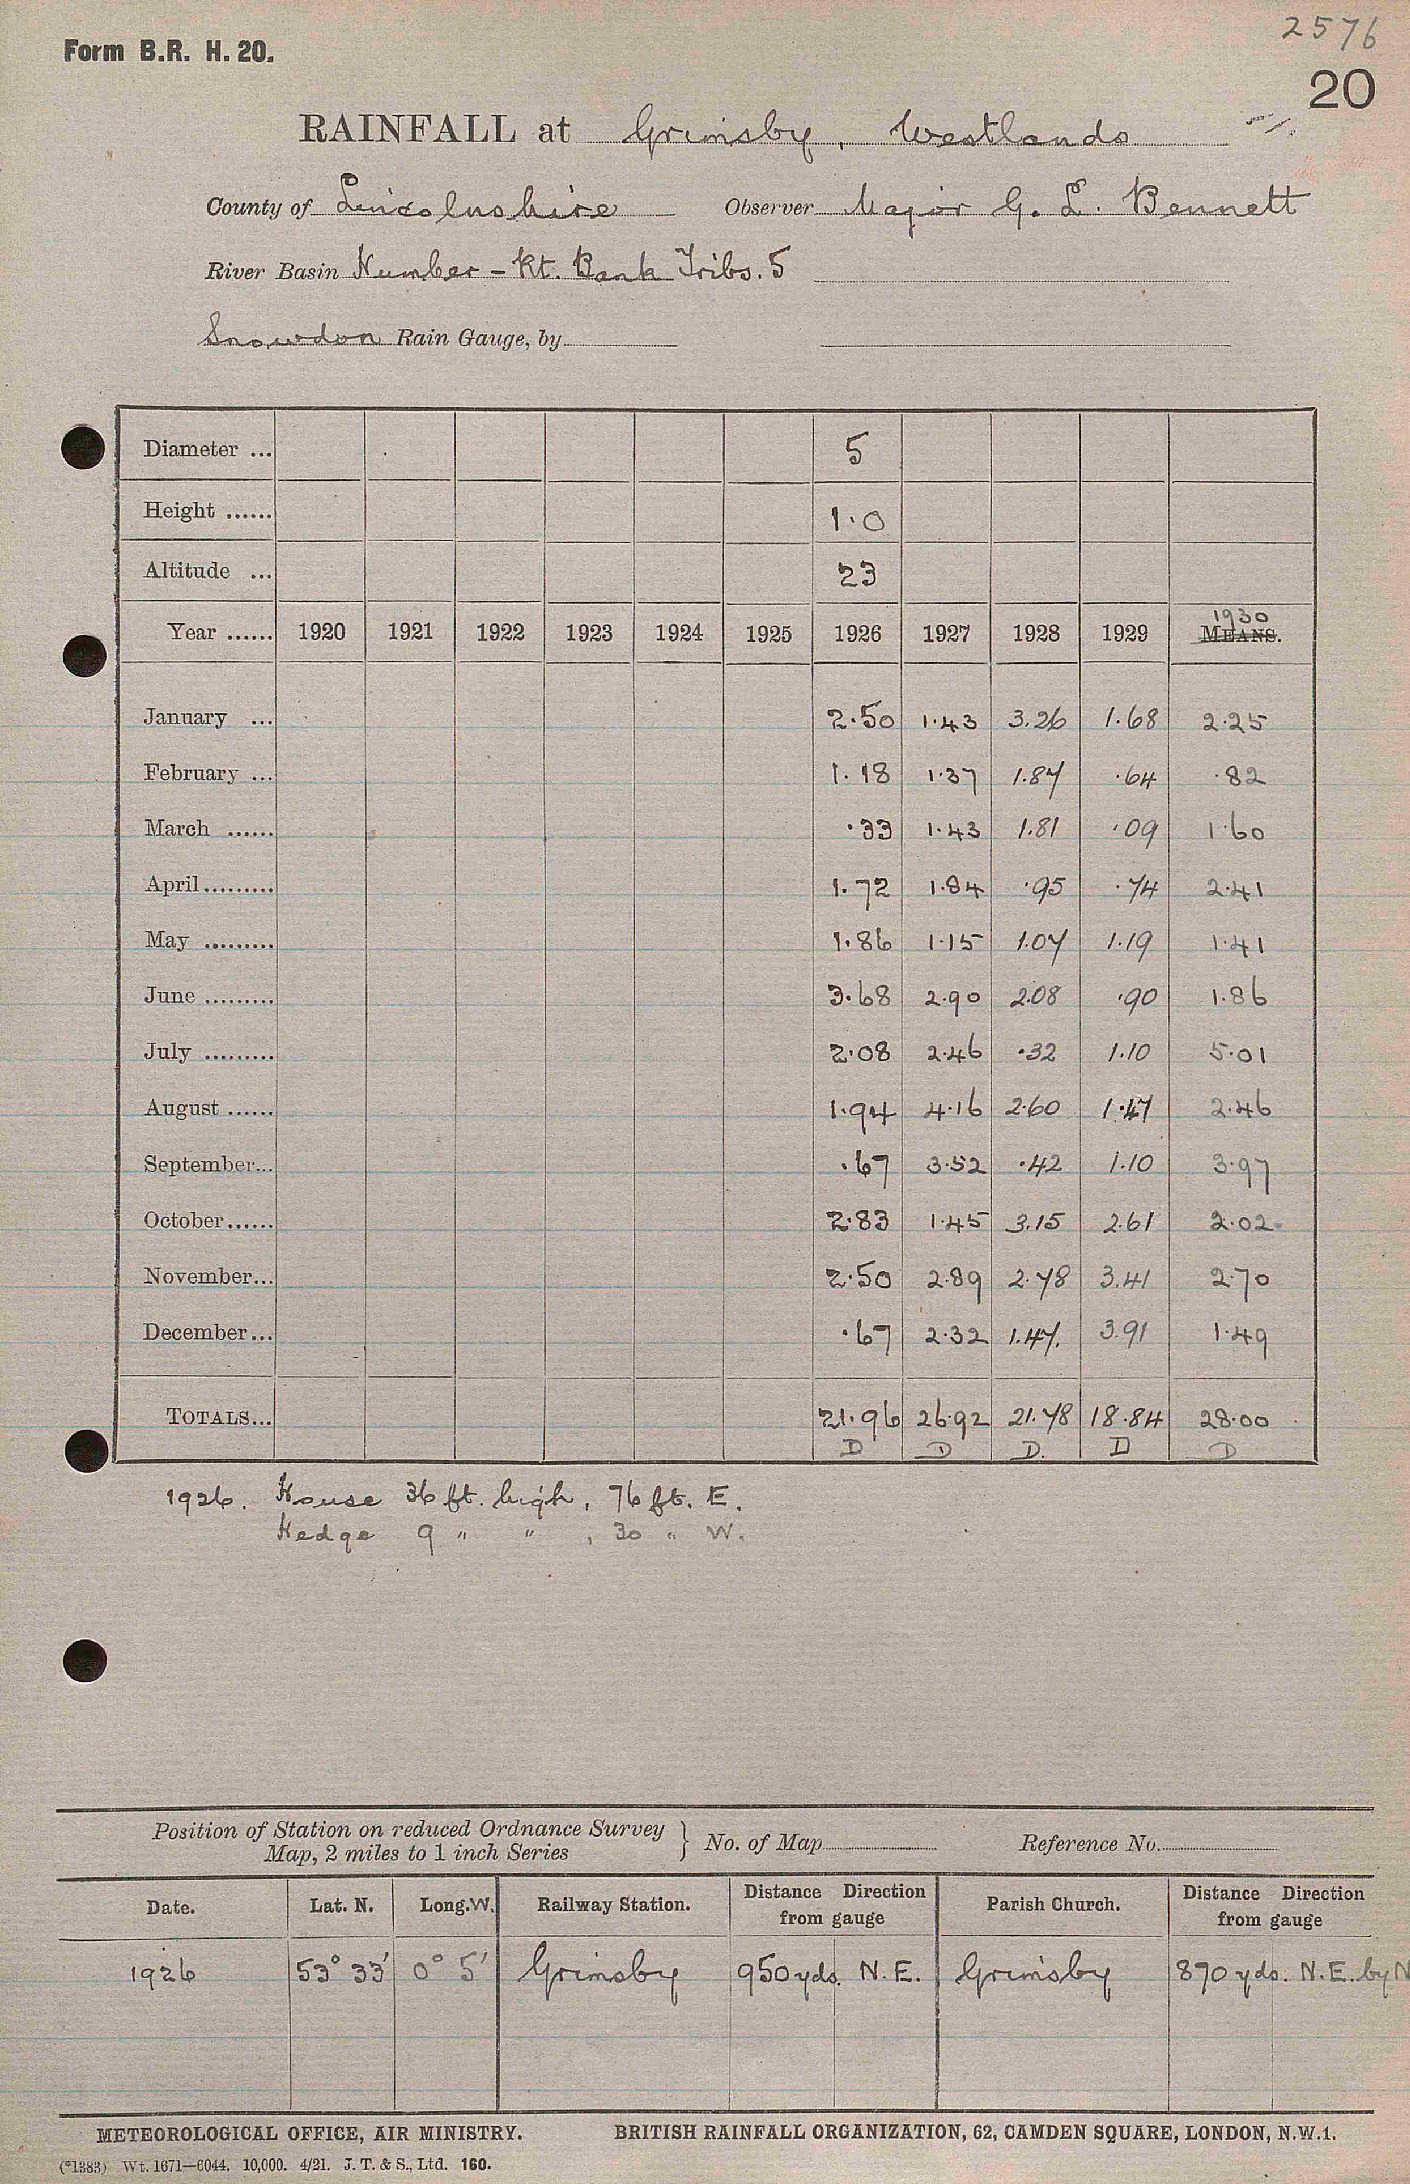 2576
Form B.R. H. 20.
20
RAINFALL at Grimsby, Westlands
County of Lincolnshire Observer Major G. L. Bennett
River Basin Humber - Rt. Bank Tribs. 5
Snowdon Rain Gauge, by
Diameter ... 5
Height ...... 1.0
Altitude ... 23
1930
Year ...... 1920 1921 1922 1923 1924 1925 1926 1927 1928 1929 MEANS.
January ... 2.50 1.43 3.26 1.68 2.25
February ... 1.18 1.37 1.87 .64 .82
March ...... .33 1.43 1.81 .09 1.60
April......... 1.72 1.84 .95 .74 2.41
May ......... 1.86 1.15 1.07 1.19 1.41
June ......... 3.68 2.90 2.08 .90 1.86
July ......... 2.08 2.46 .32 1.10 5.01
August ...... 1.94 4.16 2.60 1.47 2.46
September... .67 3.52 .42 1.10 3.97
October...... 2.83 1.45 3.15 2.61 2.02
November... 2.50 2.89 2.78 3.41 2.70
December... .67 2.32 1.47. 3.91 1.49
TOTALS... 21.96 26.92 21.78 18.84 28.00
D D D. D D
1926. House 36 ft. high, 76 ft. E.
Hedge 9 " " , 30 " W.
Position of Station on reduced Ordnance Survey
Map, 2 miles to 1 inch Series } No. of Map Reference No.
Date. Lat. N. Long. W. Railway Station. Distance Direction from gauge Parish Church. Distance Direction from gauge
1926 53° 33' 0° 5' Grimsby 950 yds. N.E. Grimsby 890 yds. N.E. by N
METEOROLOGICAL OFFICE, AIR MINISTRY. BRITISH RAINFALL ORGANIZATION, 62, CAMDEN SQUARE, LONDON, N.W.1.
(*1383) Wt. 1671—6044. 10,000. 4/21. J. T. & S., Ltd. 160.